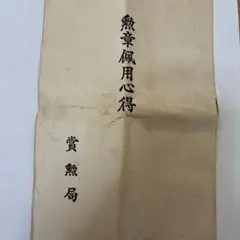 勲章佩用心得
賞勲局